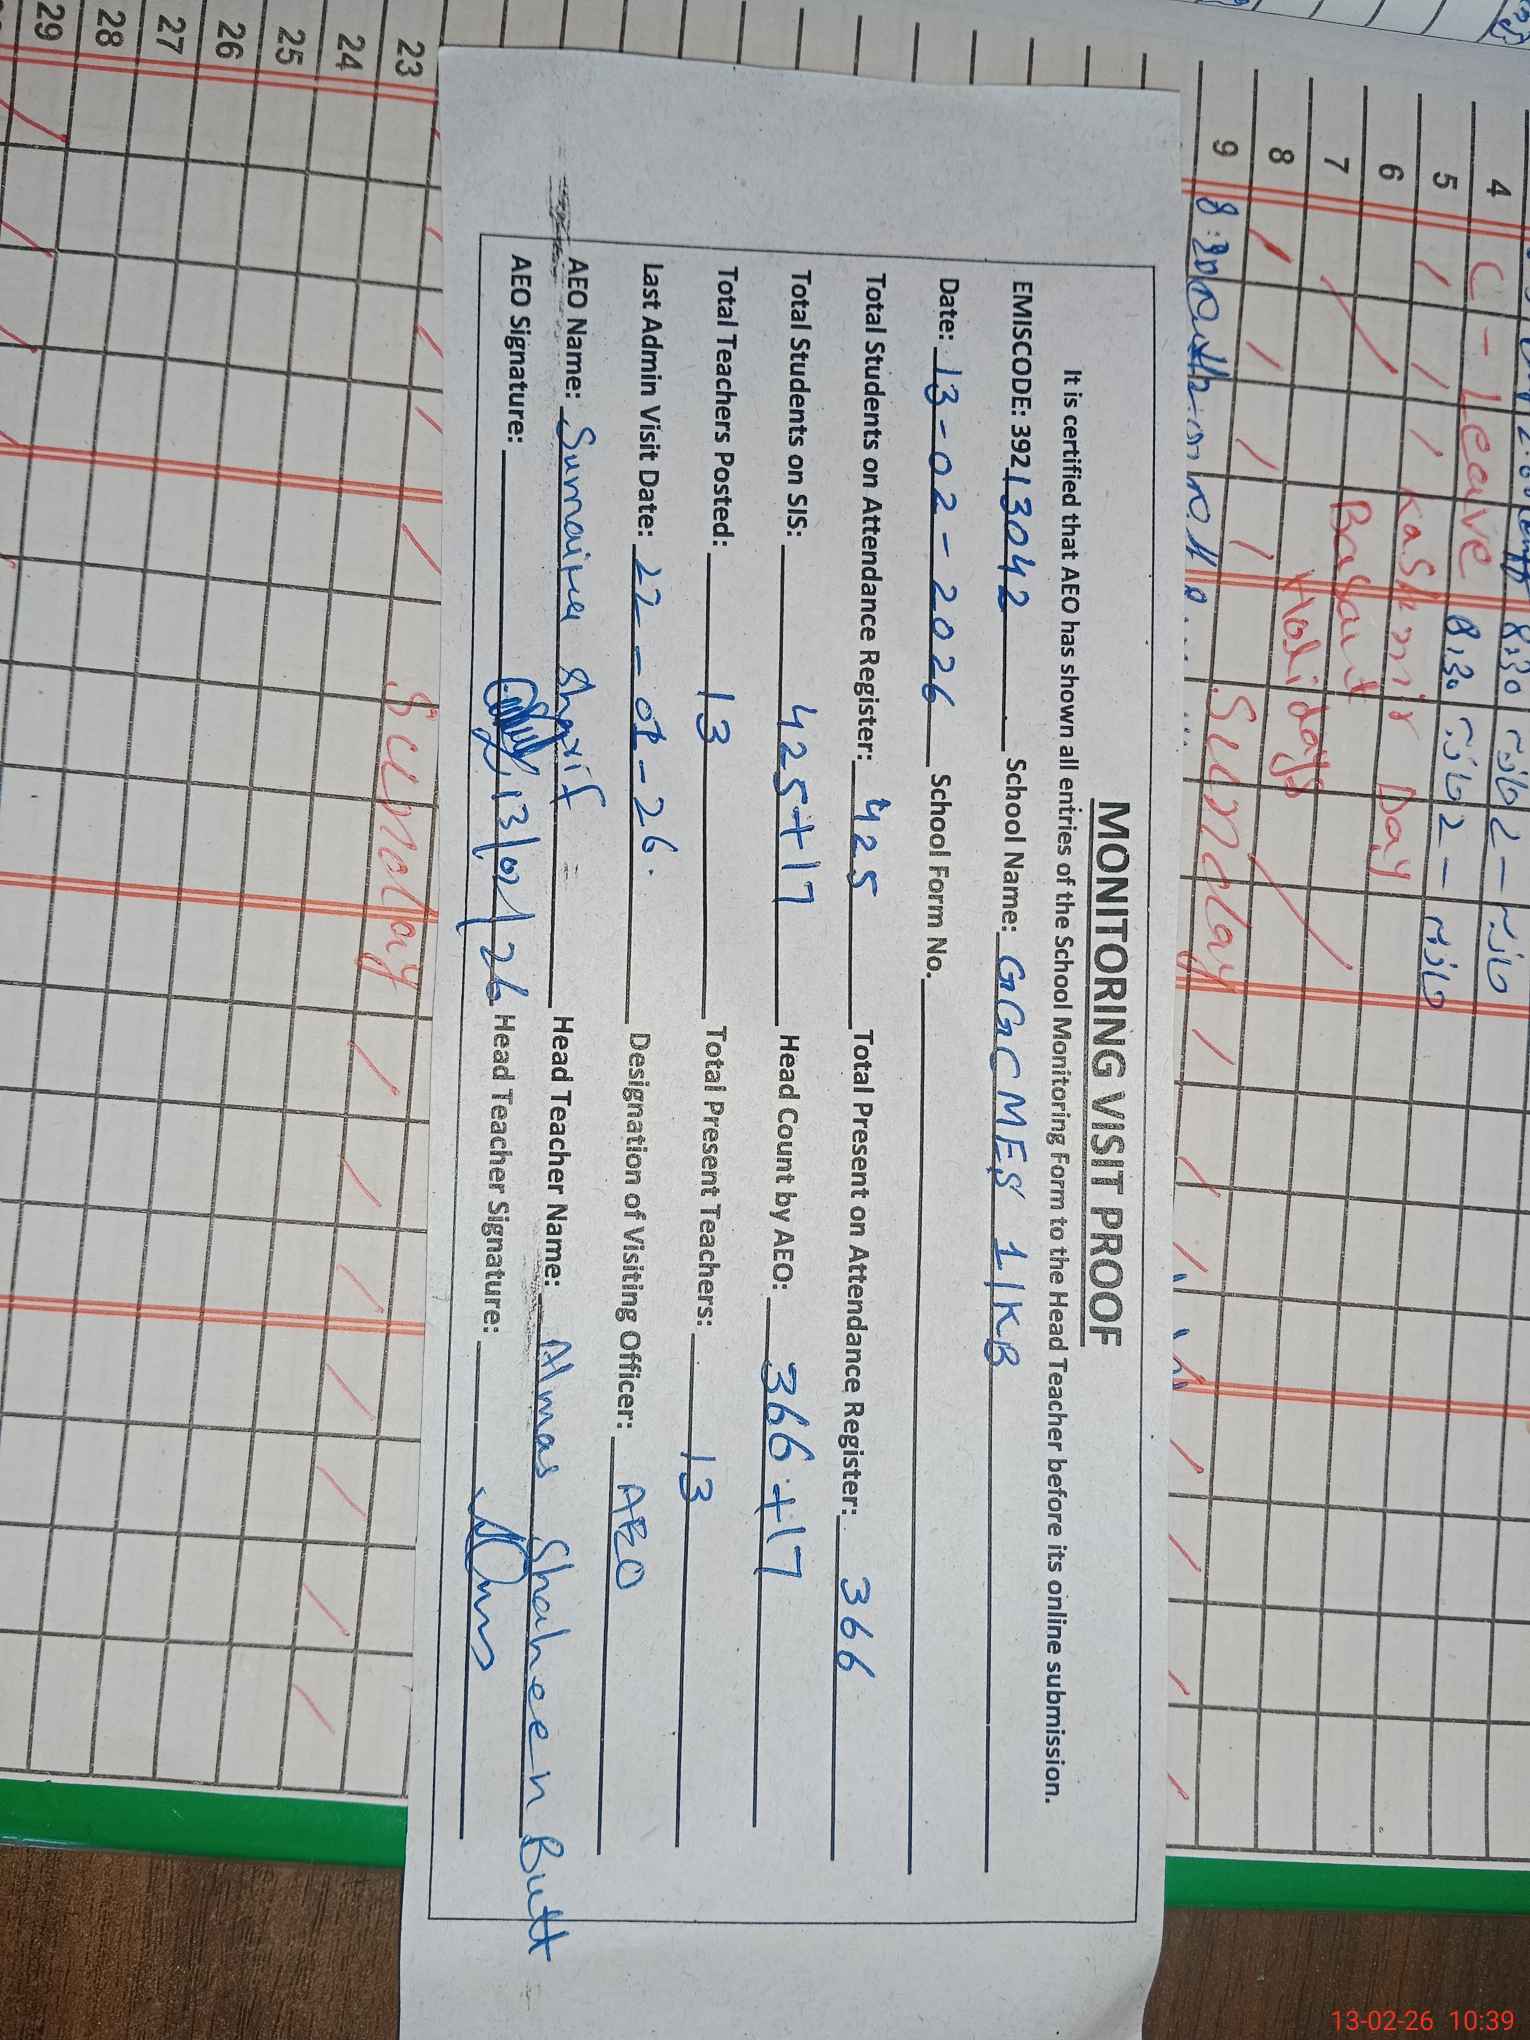 MONITORING VISIT PROOF
It is certified that AEO has shown all entries of the School Monitoring Form to the Head Teacher before its online submission.
EMISCODE: 39213042 School Name: GGCMES 1/KB
Date: 13-02-2026 School Form No.
Total Students on Attendance Register: 425 Total Present on Attendance Register: 366
Total Students on SIS: 425+17 Head Count by AEO: 366+17
Total Teachers Posted: 13 Total Present Teachers: 13
Last Admin Visit Date: 22-01-26. Designation of Visiting Officer: AEO
AEO Name: Sumaira Sharif Head Teacher Name: Almas Shaheen Butt
AEO Signature: 13/02/26 Head Teacher Signature:
4 C-Leave 8:30
5 8:30
6 Kashmir Day
7 Basant
8 Holidays
9 Sunday
8:30
23 Sunday
24
25
26
27
28
29
13-02-26 10:39